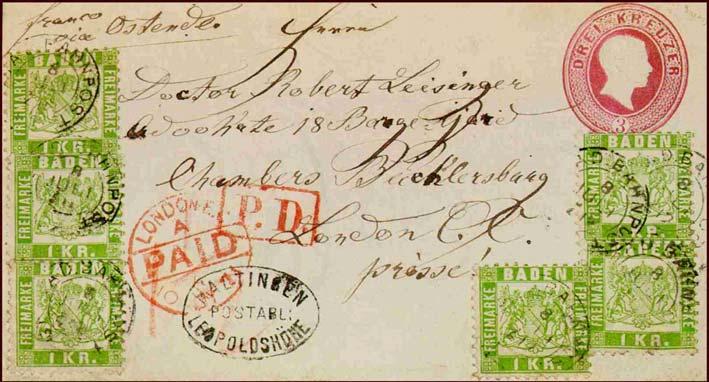 franco
via Ostende. Herrn
DREI KREUZER
3
Doctor Robert Leisinger
Advokate 18 Barge Yard
Chambers Bucklersbury
London E. C.
pressé!
BADEN
FREIMARKE FREIMARKE
BAHNPOST
BADEN
FREIMARKE FREIMARKE
1 KR.
BAHNPOST
BADEN
FREIMARKE FREIMARKE
1 KR.
LONDON E.C.
A
PAID
P.D.
HALTINGEN
POSTABL:
LEOPOLDSHÖHE
BADEN
FREIMARKE
1 KR.
FREIMARKE
1 KR.